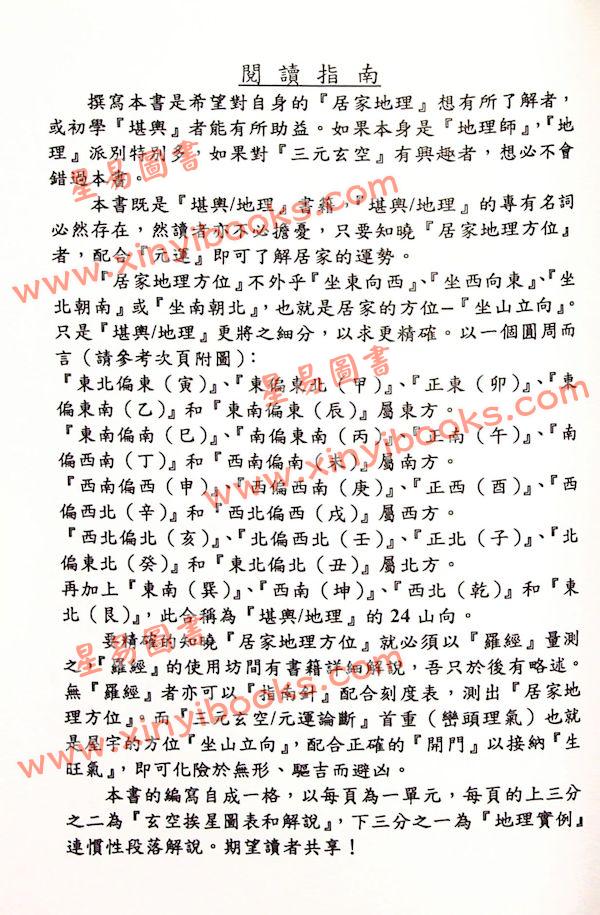 閱讀指南
撰寫本書是希望對自身的『居家地理』想有所了解者，
或初學『堪輿』者能有所助益。如果本身是『地理師』，『地
理』派別特別多，如果對『三元玄空』有興趣者，想必不會
錯過本書。
本書既是『堪輿/地理』書籍，『堪輿/地理』的專有名詞
必然存在，然讀者亦不必擔憂，只要知曉『居家地理方位』
者，配合『元運』即可了解居家的運勢。
『居家地理方位』不外乎『坐東向西』、『坐西向東』、『坐
北朝南』或『坐南朝北』，也就是居家的方位–『坐山立向』。
只是『堪輿/地理』更將之細分，以求更精確。以一個圓周而
言（請參考次頁附圖）：
『東北偏東（寅）』、『東偏東北（甲）』、『正東（卯）』、『東
偏東南（乙）』和『東南偏東（辰）』屬東方。
『東南偏南（巳）』、『南偏東南（丙）』、『正南（午）』、『南
偏西南（丁）』和『西南偏南（未）』屬南方。
『西南偏西（申）』、『西偏西南（庚）』、『正西（酉）』、『西
偏西北（辛）』和『西北偏西（戌）』屬西方。
『西北偏北（亥）』、『北偏西北（壬）』、『正北（子）』、『北
偏東北（癸）』和『東北偏北（丑）』屬北方。
再加上『東南（巽）』、『西南（坤）』、『西北（乾）』和『東
北（艮）』，此合稱為『堪輿/地理』的 24 山向。
要精確的知曉『居家地理方位』就必須以『羅經』量測
之，『羅經』的使用坊間有書籍詳細解說，吾只於後有略述。
無『羅經』者亦可以『指南針』配合刻度表，測出『居家地
理方位』。而『三元玄空/元運論斷』首重（巒頭理氣）也就
是屋宇的方位『坐山立向』，配合正確的『開門』以接納『生
旺氣』，即可化險於無形、驅吉而避凶。
本書的編寫自成一格，以每頁為一單元，每頁的上三分
之二為『玄空挨星圖表和解說』，下三分之一為『地理實例』
連慣性段落解說。期望讀者共享！
星易圖書
www.xinyibooks.com
星易圖書
www.xinyibooks.com
星易圖書
www.xinyibooks.com